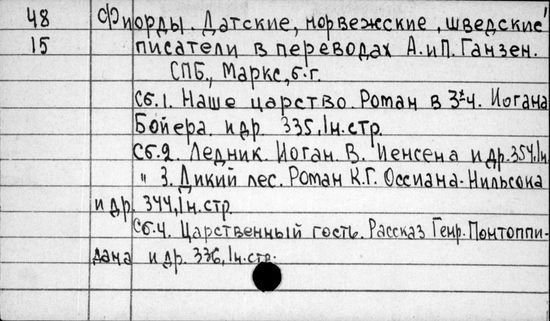 48 Фиорды. Датские, норвежские, шведские
15 писатели в переводах А. и П. Ганзен.
СПБ., Маркс, б.г.
Сб.1. Наше царство. Роман в 3х ч. Иогана
Бойера. и др. 335, 1 н. стр.
Сб.2. Ледник. Иоган. В. Иенсена и др. 354, 1 н.
" 3. Дикий лес. Роман К.Г. Оссиана-Нильсона
и др. 344, 1 н. стр.
Сб.4. Царственный гость. Рассказ Генр. Понтоппи-
дана и др. 336, 1 н. стр.